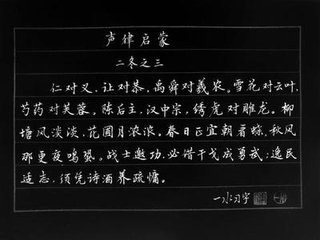 声律启蒙
二冬之三
仁对义，让对恭，禹舜对羲农。雪花对云叶，
芍药对芙蓉。陈后主，汉中宗，绣虎对雕龙。柳
塘风淡淡，花圃月浓浓。春日正宜朝看蝶，秋风
那更夜鸣蛩。战士邀功，必借干戈成勇武；逸民
适志，须凭诗酒养疏慵。
一水习字